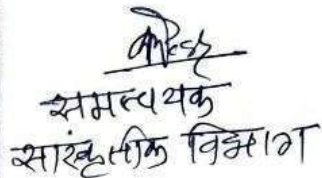 समन्वयक
सांस्कृतीक विभाग